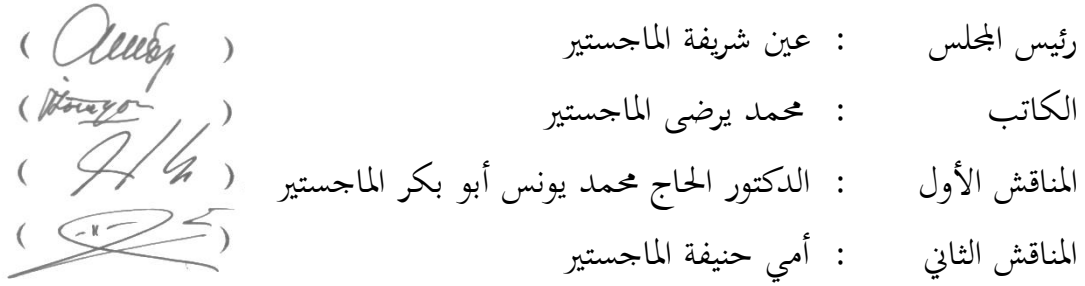 رئيس المجلس : عين شريفة الماجستير ( )
الكاتب : محمد يرضى الماجستير ( )
المناقش الأول : الدكتور الحاج محمد يونس أبو بكر الماجستير ( )
المناقش الثاني : أمي حنيفة الماجستير ( )